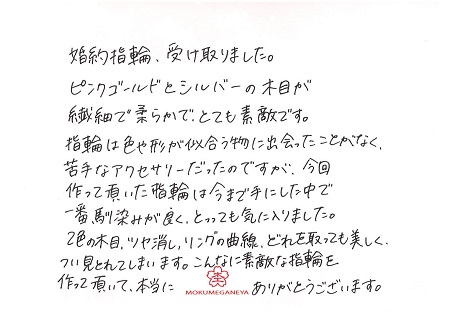 婚約指輪、受け取りました。
ピンクゴールドとシルバーの木目が
繊細で柔らかで、とても素敵です。
指輪は色や形が似合う物に出会ったことがなく、
苦手なアクセサリーだったのですが、今回
作って頂いた指輪は今まで手にした中で
一番馴染みが良く、とっても気に入りました。
2色の木目、ツヤ消し、リングの曲線、どれを取っても美しく、
つい見とれてしまいます。こんなに素敵な指輪を
作って頂いて、本当に ありがとうございます。
杢
MOKUMEGANEYA